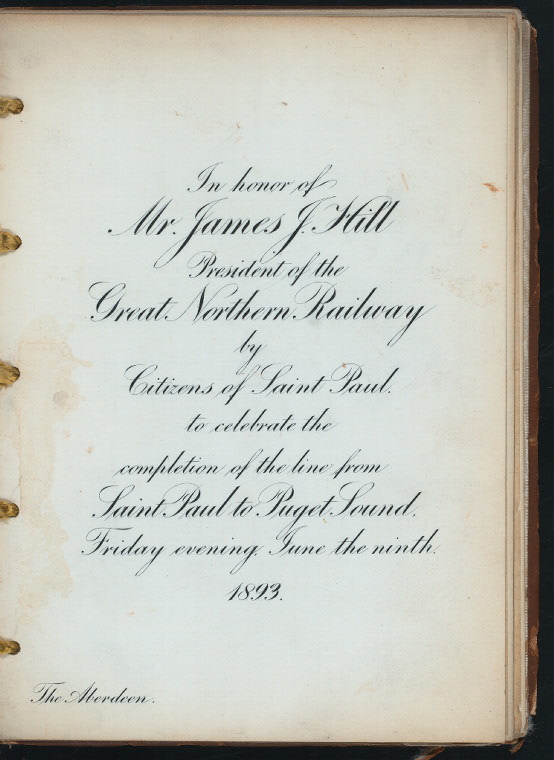 In honor of
Mr. James J. Hill
President of the
Great Northern Railway
by
Citizens of Saint Paul.
to celebrate the
completion of the line from
Saint Paul to Puget Sound.
Friday evening, June the ninth.
1893.
The Aberdeen.